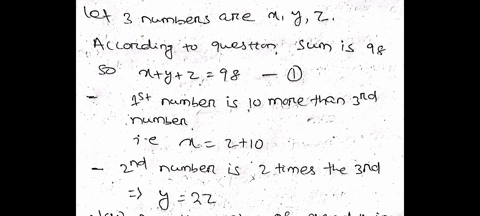 let 3 numbers are x, y, z.
According to question, sum is 98
so x+y+z = 98 — ①
- 1st number is 10 more than 3rd
number
i.e x = z+10
- 2nd number is 2 times the 3rd
=> y = 2z